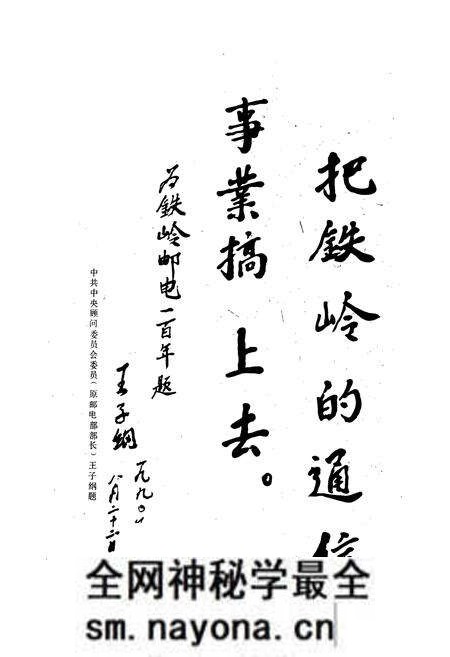 把鉄岭的通信
事業搞上去。
为鉄岭邮电一百年题
王子綱
一九九〇、
八月二十
中共中央顾问委员会委员(原邮电部部长)王子纲题
全网神秘学最全
sm.nayona.cn